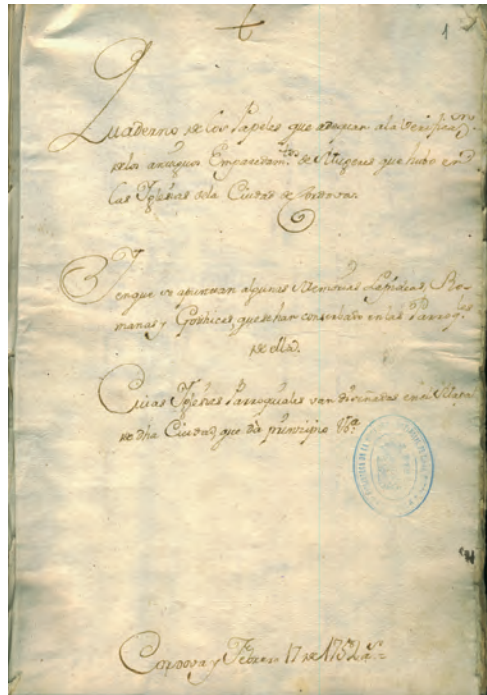 1
Quaderno de los Papeles que adequan ala Verificaon.
delos antiguos Emparedamtos. de Mugeres que hubo en
las Yglesias dela Ciudad de Cordova.
Y enque se apuntan algunas Memorias Ro-
manas y Gothicas, que se han conservado en las Parroqles.
de ella.
Cuias Yglesias Parroquiales van diseñadas en el Mapa
de dha Ciudad, que dà principio
Cordova y Febrero 17 de 1752 as.